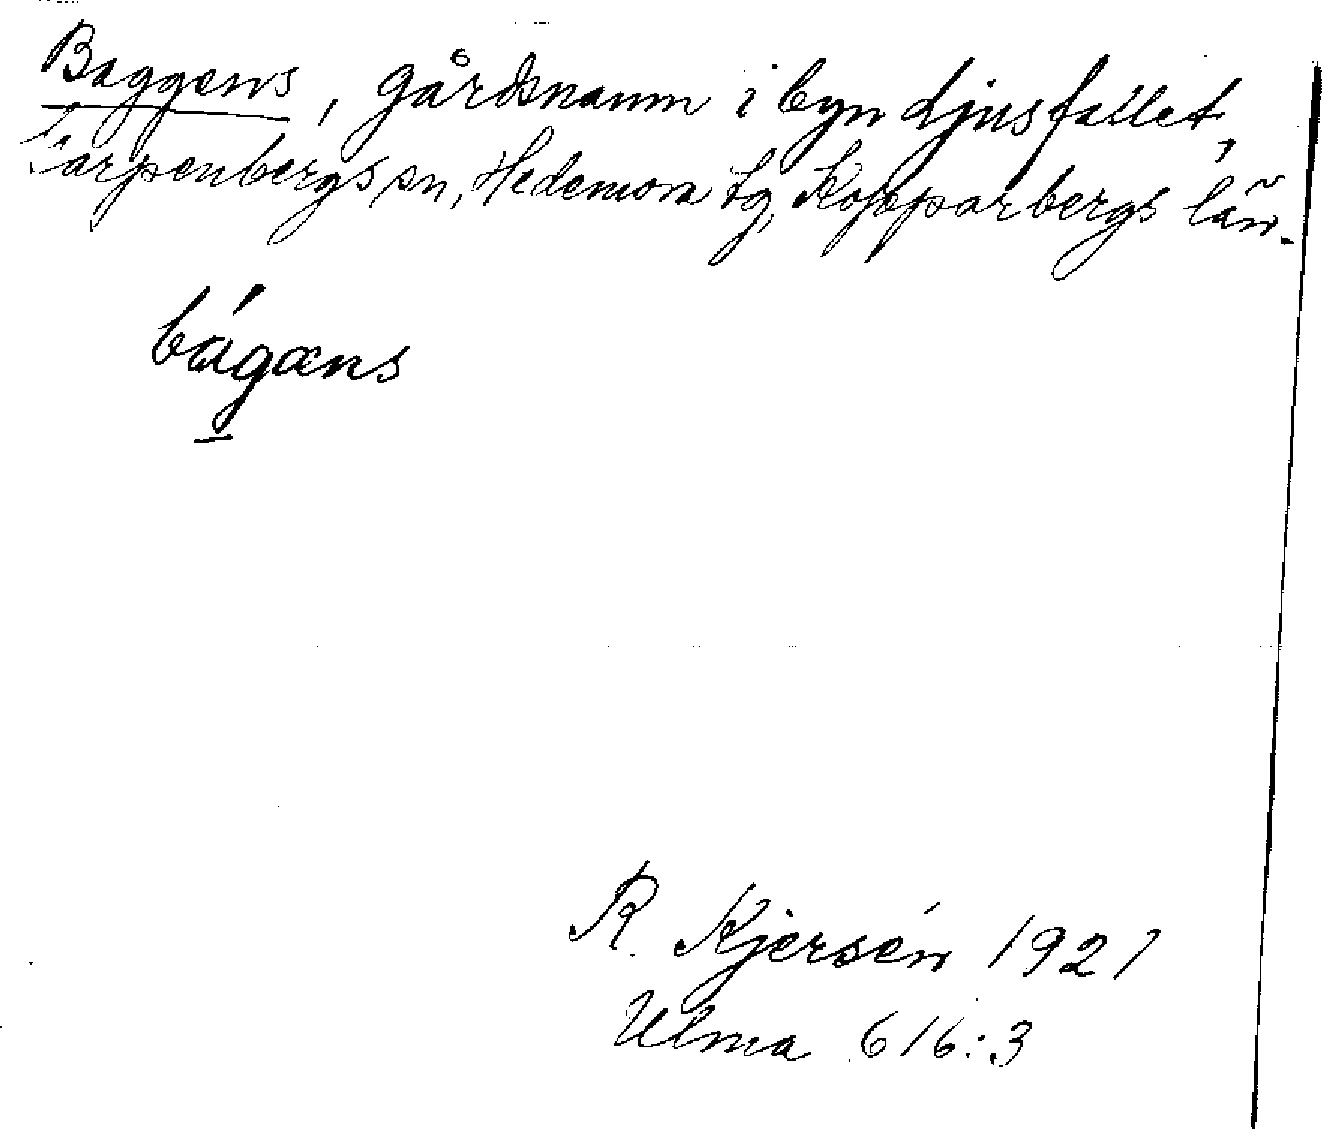 Baggens, gårdsnamn i byn Ljusfallet,
Garpenbergs sn, Hedemora tg, Kopparbergs län.
bágæns
R. Kjersén 1921
Ulma 616:3